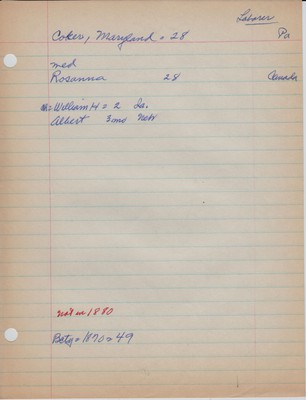 Laborer
Coker, Maryland = 28 Pa
med
Rosanna 28 Canada
William H = 2 Ia.
Albert 3mo Nebr
Not in 1880
Boty = 1870 = 49